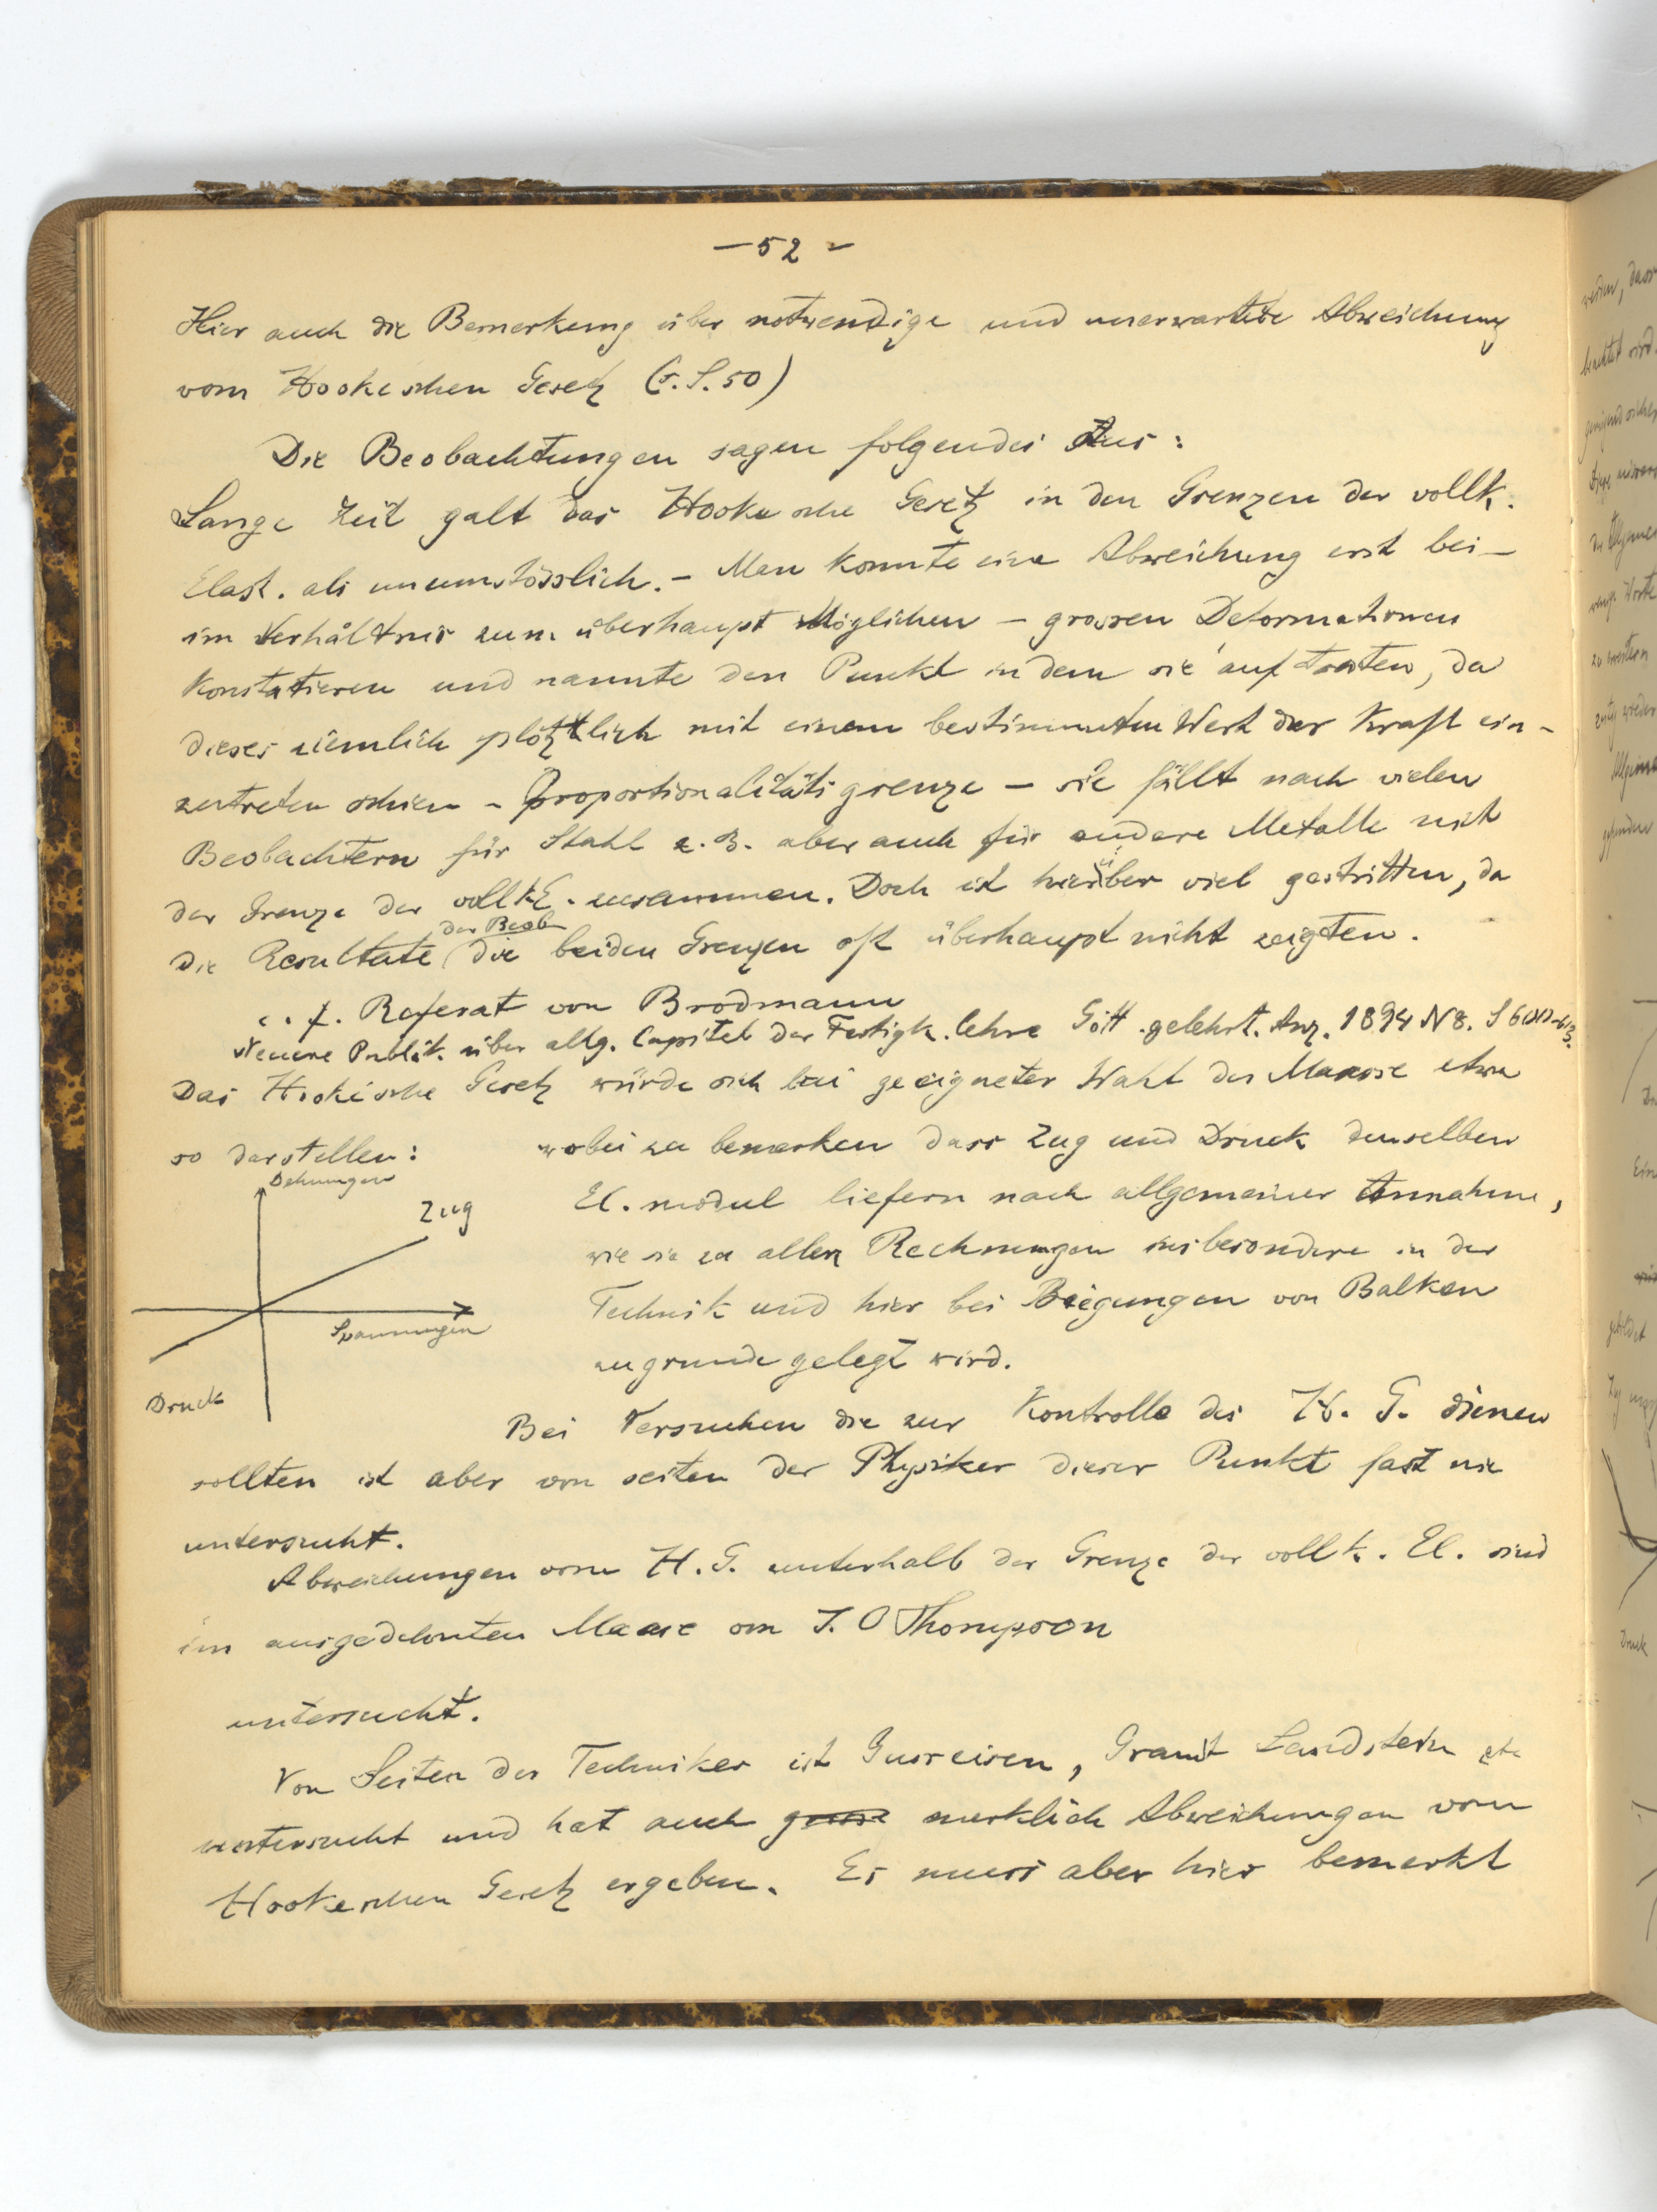 — 52 –
Hier auch die Bemerkung über notwendige und unerwartete Abweichung
vom Hookeschen Gesetz (s. S. 50)
Die Beobachtungen sagen folgendes Aus:
Lange Zeit galt das Hookesche Gesetz in den Grenzen der vollk.
Elast. als unumstösslich. – Man konnte eine Abweichung erst bei –
im Verhältnis zum überhaupt Möglichen – grossen Deformationen
Konstatieren und nannte den Punkt in dem sie auftraten, da
dieses ziemlich plötzlich mit einem bestimmten Wert der Kraft ein-
zutreten schien – Proportionalitätsgrenze – sie fällt nach vielen
Beobachtern für Stahl z. B. aber auch für andere Metalle mit
der Grenze der vollk E. zusammen. Doch ist hierüber viel gestritten, da
der Beob
die Resultate die beiden Grenzen oft überhaupt nicht zeigten.
c. f. Referat von Brodmann
Neuere Publik. über allg. Capitel der Festigk. lehre Gött. gelehrt. Anz. 1894 N 8. S
Das Hookesche Gesetz würde sich bei geeigneter Wahl der Maasse etwa
so darstellen: wobei zu bemerken dass Zug und Druck denselben
Dehnungen
Zug
Spannungen
Druck
El. modul liefern nach allgemeiner Annahme,
wie sie zu allen Rechnungen insbesondere in der
Technik und hier bei Biegungen von Balken
zugrunde gelegt wird.
Bei Versuchen die zur Kontrolle des H. G. dienen
sollten ist aber von seiten der Physiker dieser Punkt fast nie
untersucht.
Abweichungen vom H. G. unterhalb der Grenze der vollk. El. sind
im ausgedehnten Maase von J. O Thompson
untersucht.
Von Seiten der Techniker ist Gusseisen, Granit Sandstein etc
untersucht und hat auch merklich Abweichungen vom
Hookeschen Gesetz ergeben. Es muss aber hier bemerkt